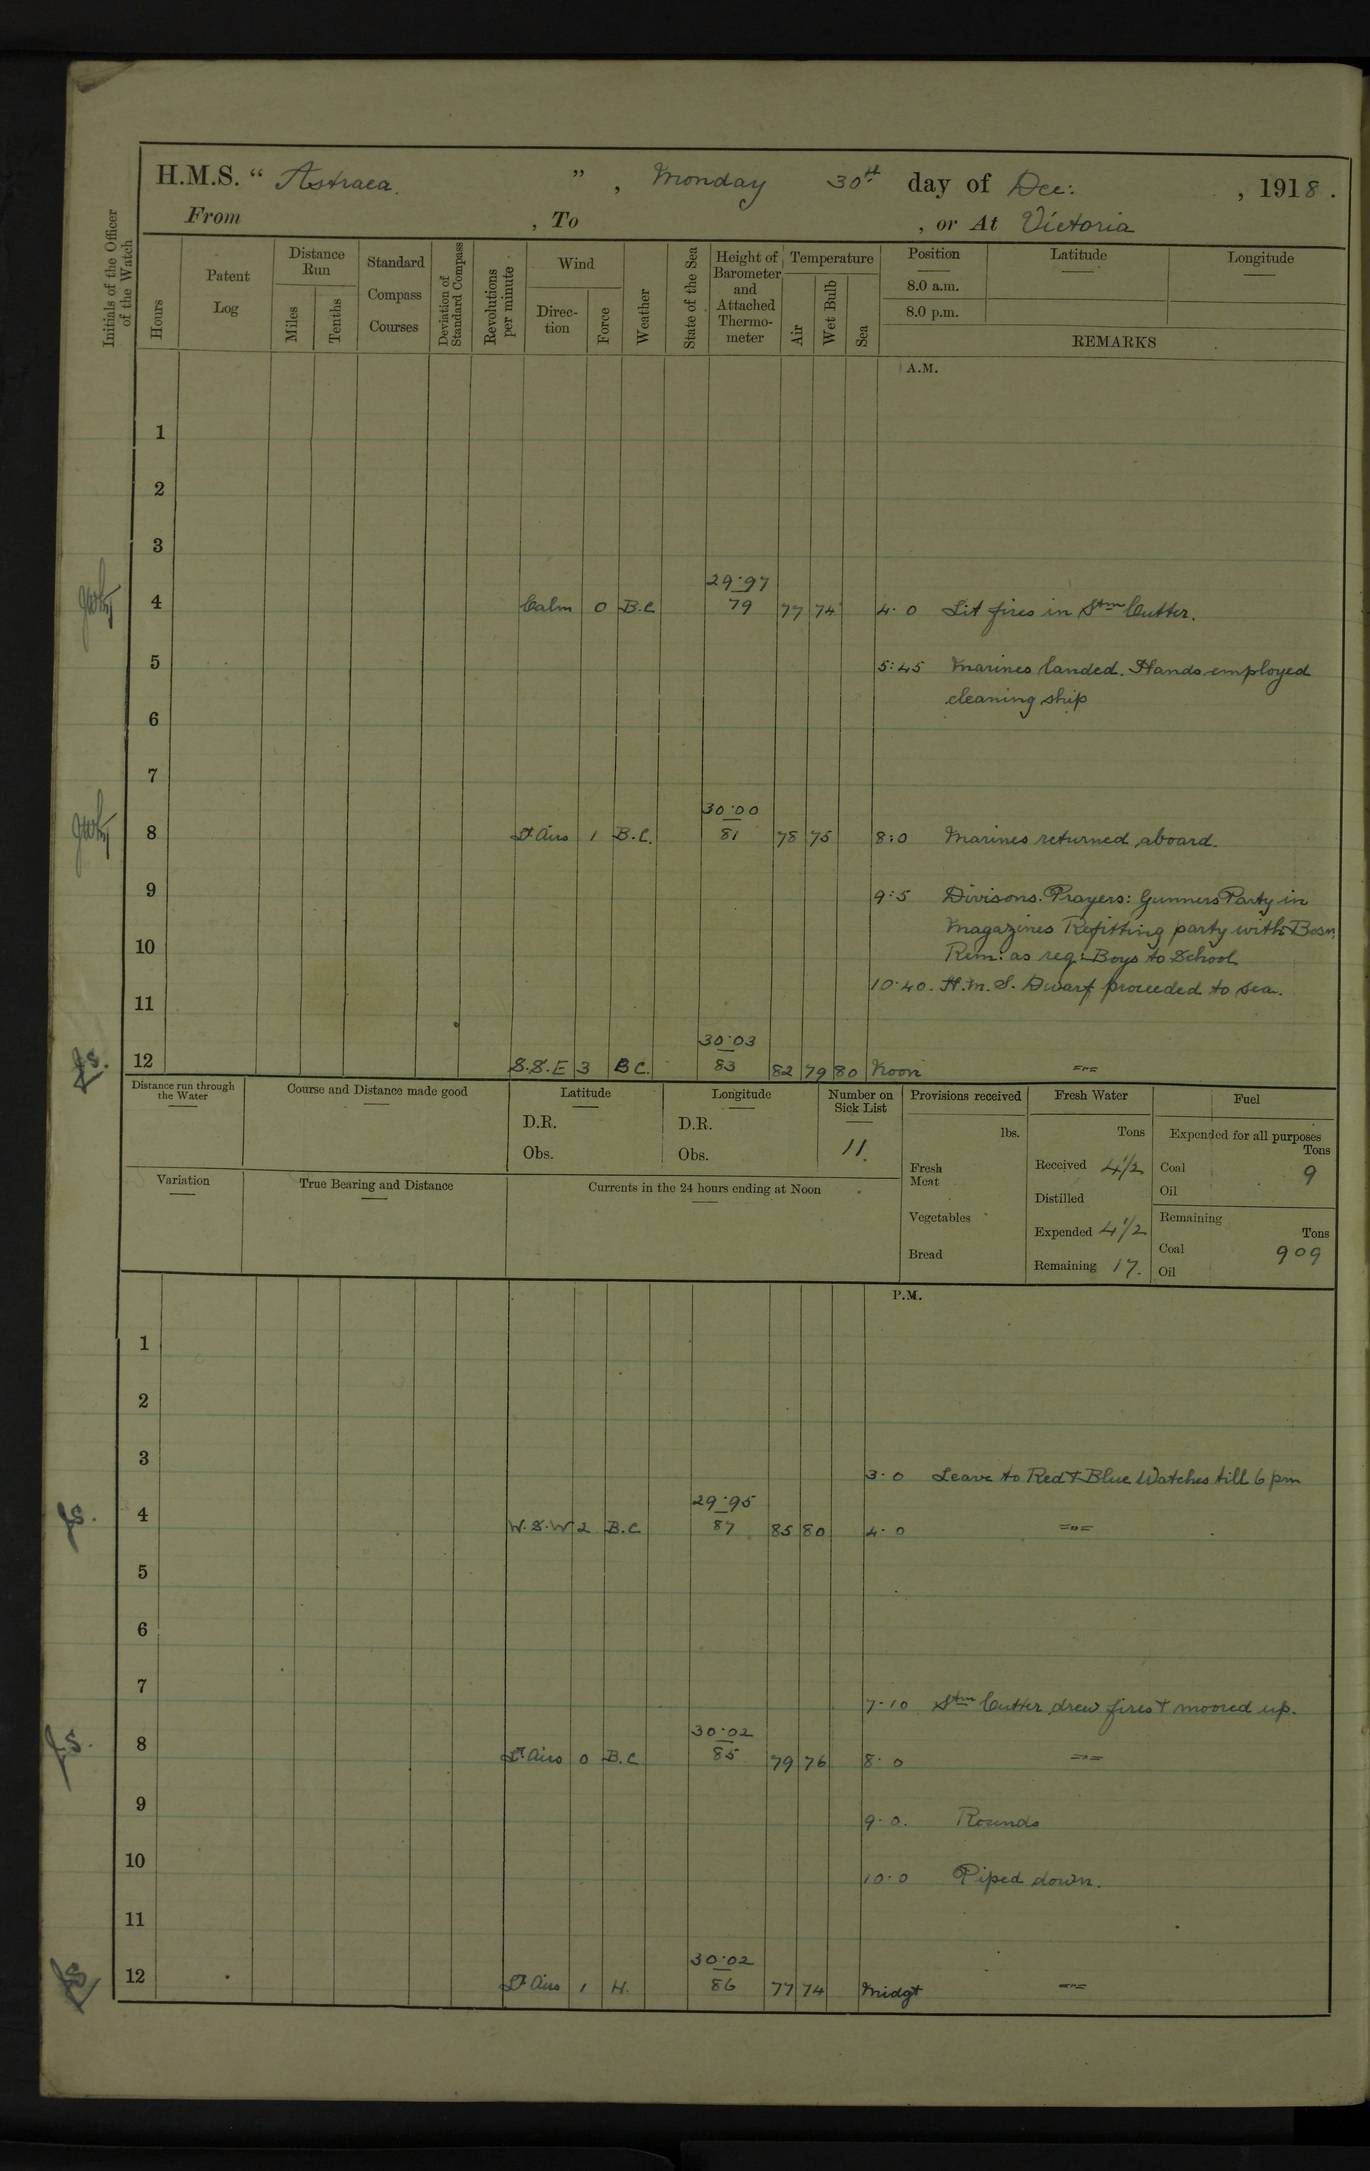 H.M.S. “ Astraea. ” , Monday 30th day of Dec: , 1918.
From , To , or At Victoria
Initials of the Officer of the Watch
Hours
Patent Log
Distance Run
Miles
Tenths
Standard Compass Courses
Deviation of Standard Compass
Revolutions per minute
Wind
Direc-tion
Force
Weather
State of the Sea
Height of Barometer and Attached Thermo-meter
Temperature
Air
Wet Bulb
Sea
Position
8.0 a.m.
8.0 p.m.
Latitude
Longitude
REMARKS
A.M.
1
2
3
29.97
4 Calm 0 B.C. 79 77 74 4.0 Lit fires in Stm Cutter.
5 5:45 Marines landed. Hands employed
cleaning ship
6
7
30.00
8 Lt Airs 1 B.C. 81 78 75 8:0 Marines returned aboard.
9 9:5 Divisons. Prayers: Gunners Party in
Magazines Refitting party with Bosn
10 Rem: as req: Boys to School
10.40. H.M.S. Dwarf proceeded to sea.
11
30.03
JS. 12 S.S.E 3 BC. 83 82 79 80 Noon ="=
Distance run through the Water
Course and Distance made good
Latitude
D.R.
Obs.
Longitude
D.R.
Obs.
Number on Sick List
11.
Provisions received
lbs.
Fresh Meat
Vegetables
Bread
Fresh Water
Tons
Received 4 1/2
Distilled
Expended 4 1/2
Remaining 17.
Fuel
Expended for all purposes
Tons
Coal 9
Oil
Remaining
Tons
Coal 909
Oil
Variation
True Bearing and Distance
Currents in the 24 hours ending at Noon
P.M.
1
2
3 3.0 Leave to Red & Blue Watches till 6 pm
29.95
JS. 4 W.S.W 2 B.C. 87 85 80 4.0 ="=
5
6
7 7.10 Stm Cutter drew fires & moored up.
30.02
JS. 8 Lt Airs 0 B.C 85 79 76 8.0 ="=
9 9.0. Rounds
10 10.0 Piped down.
11
30.02
JS 12 Lt Airs 1 H. 86 77 74 Midgt ="=